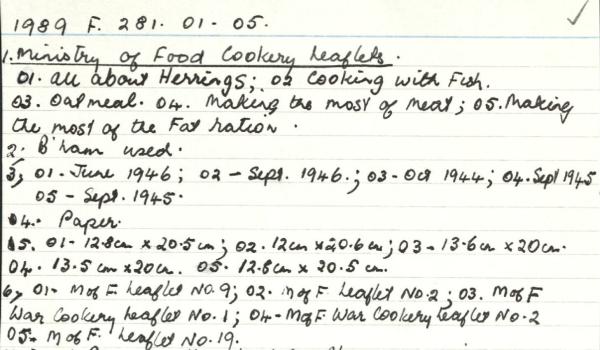 1989 F. 281. 01 - 05.
1. Ministry of Food Cookery Leaflets.
01. All about Herrings; 02 Cooking with Fish.
03. Oatmeal. 04. Making the most of meat; 05. Making
the most of the Fat ration.
2. B'ham used.
3, 01 - June 1946; 02 - Sept. 1946.; 03 - Oct 1944; 04. Sept 1945
05 - Sept. 1945.
04. Paper.
5. 01 - 12.8cm x 20.5cm; 02. 12cm x 20.6cm; 03 - 13.6cm x 20cm.
04. 13.5cm x 20cm. 05. 12.8cm x 20.5cm.
6, 01 - M of F. Leaflet No. 9; 02. M of F. Leaflet No. 2; 03. M of F
War Cookery Leaflet No. 1; 04 - M of F. War Cookery Leaflet No. 2
05 - M of F. Leaflet No. 19.